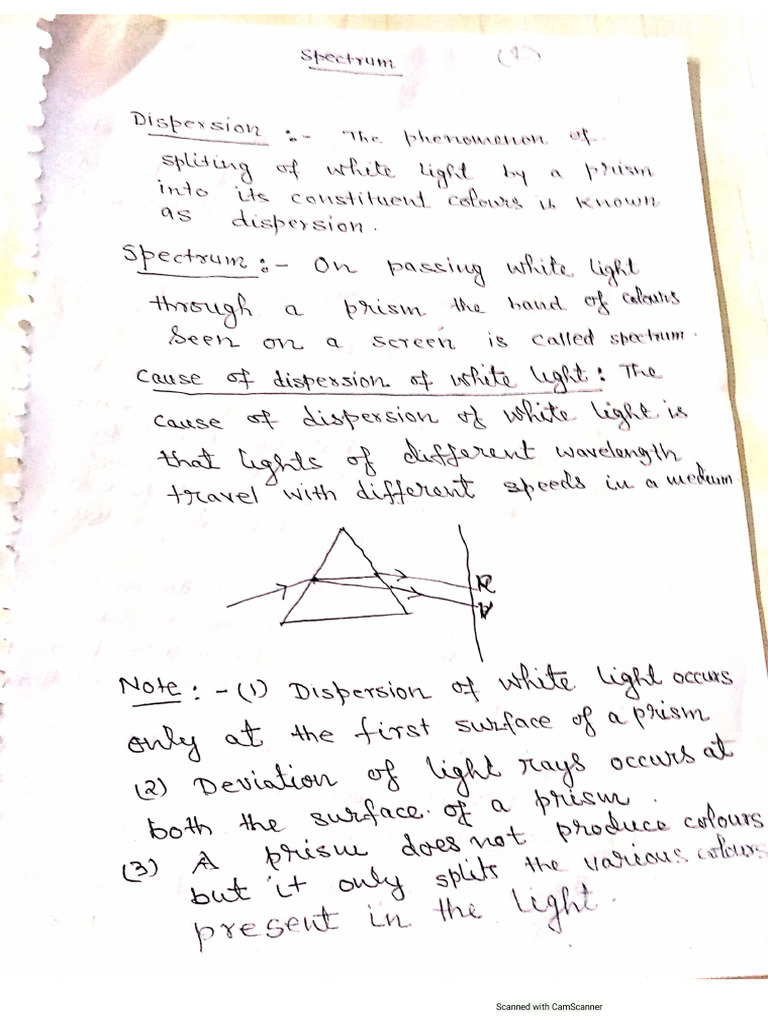 Spectrum
(1)
Dispersion :- The phenomenon of
spliting of white light by a prism
into its constituent colours is known
as dispersion.
Spectrum :- On passing white light
through a prism the band of colours
Seen on a screen is called spectrum.
Cause of dispersion of white light : The
cause of dispersion of white light is
that lights of different wavelength
travel with different speeds in a medium
R
V
Note : - (1) Dispersion of white light occurs
only at the first surface of a prism
(2) Deviation of light rays occurs at
both the surface of a prism.
(3) A prism does not produce colours
but it only splits the various colours
present in the light.
Scanned with CamScanner